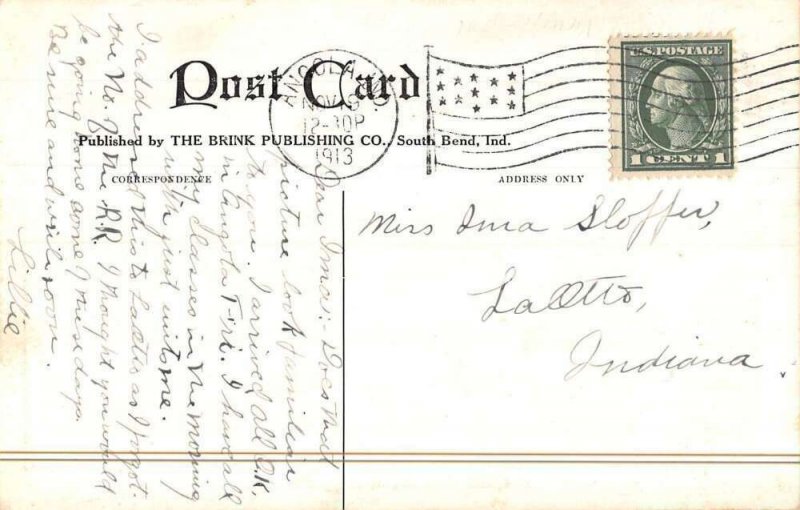 Post Card
Published by THE BRINK PUBLISHING CO., South Bend, Ind.
CORRESPONDENCE
ADDRESS ONLY
ANGOLA
NOV
12-30P
1913
U.S. POSTAGE
1 CENT 1
Miss Ima Sloffer,
LaOtto,
Indiana.
Dear Ima:- Does that
picture look familiar
to you. I arrived all O.K.
in Angola Fri. I have all
my classes in the morning
which just suits me.
I addressed this to LaOtto as I forgot
the No. of the R.R. I thought you would
be going home some of these days.
Be sure and write soon.
Lillie